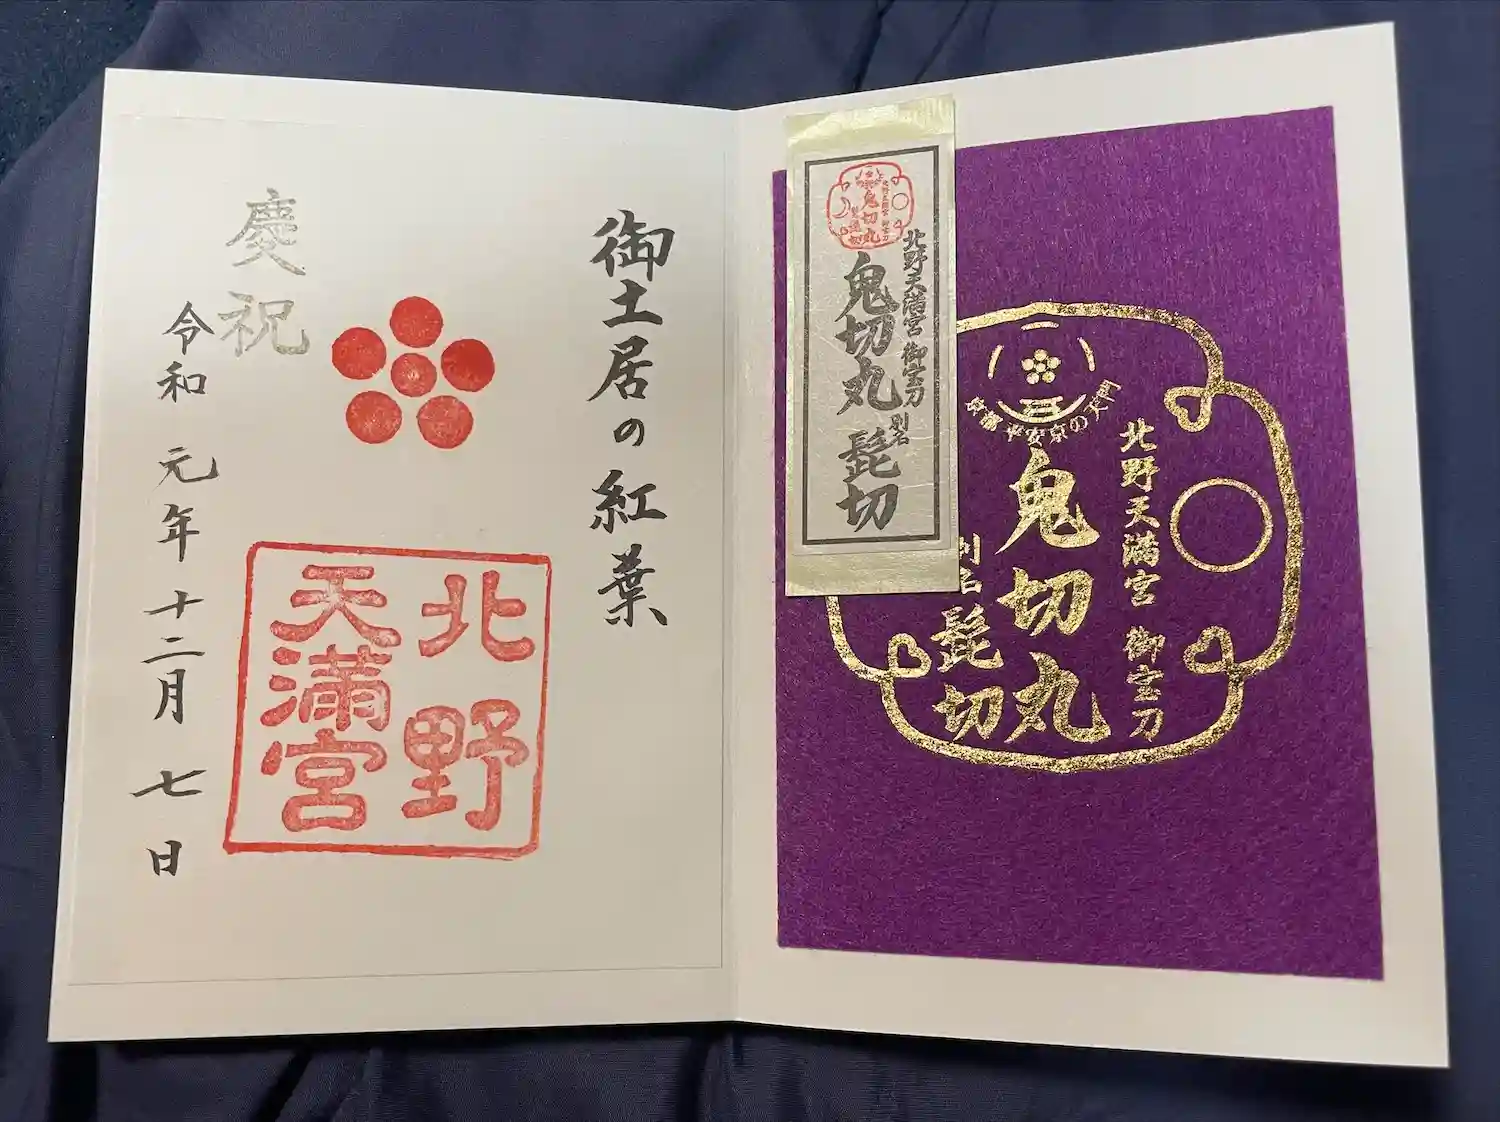 北野天満宮 御宝刀
鬼切丸
別名
髭切
京都 平安京の天門
北野天満宮 御宝刀
鬼切丸 別名 髭切
北野天満宮 御宝刀
鬼切丸
髭切
御土居の紅葉
北野
天満宮
慶祝
令和元年十二月七日